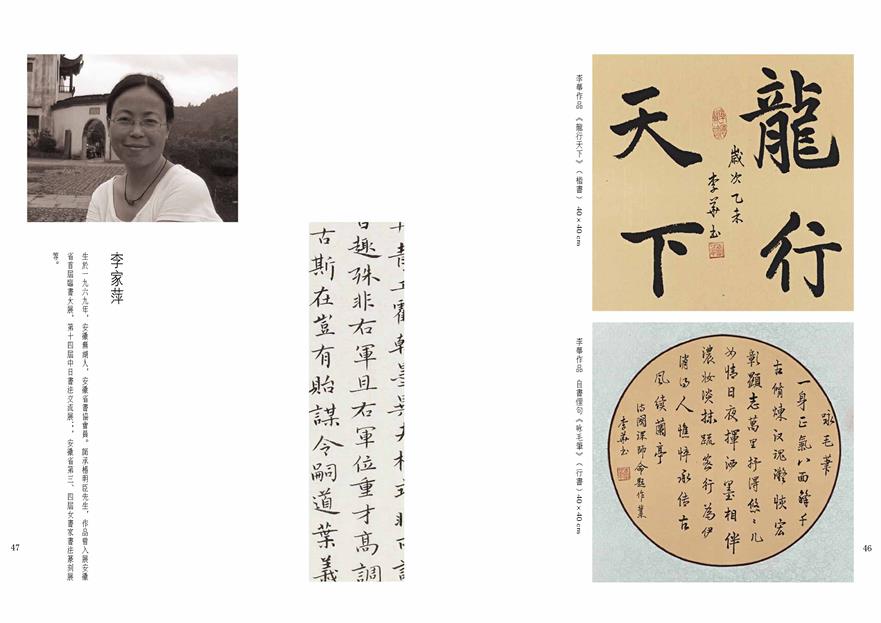 龍行
天下
歲次乙未
李華書
李華作品 《龍行天下》（楷書） 40×40 cm
咏毛筆
一身正氣八面鋒千
古脩煉汉魂凝 宏
彰顯志萬里抒得悠〻儿
女情日夜揮洒墨相伴
濃妝淡抹疏密行為伊
消得人憔悴永傳古
風續蘭亭
命題作業
李華書
李華作品 自書俚句《咏毛筆》（行書）40×40 cm
46
趣殊非右軍且右軍位重才高調
古斯在豈有貽謀令嗣道葉義
李家萍
生於一九六九年，安徽蕪湖人，安徽省書協會員。師承楊明臣先生，作品曾入展安徽
省首屆臨書大展、第十四屆中日書法交流展；、安徽省第三、四屆女書家書法篆刻展
等。
47